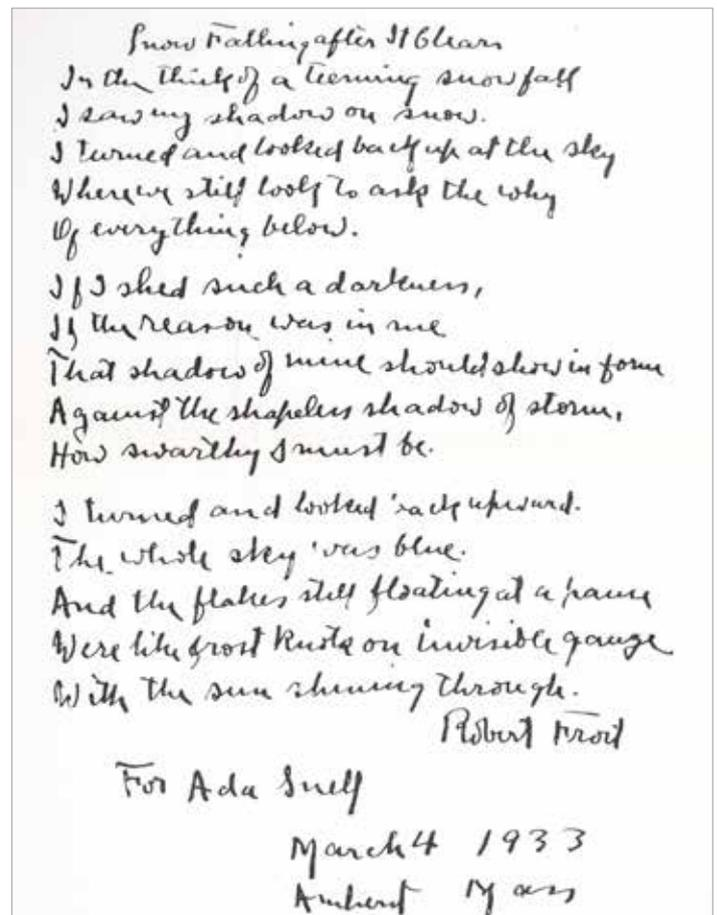 Snow Falling after It Clears
In the thick of a teeming snowfall
I saw my shadow on snow.
I turned and looked back up at the sky
Where we still look to ask the why
Of everything below.
If I shed such a darkness,
If the reason was in me
That shadow of mine should show in form
Against the shapeless shadow of storm,
How swarthy I must be.
I turned and looked back upward.
The whole sky was blue.
And the flakes still floating at a pause
Were like frost knots on invisible gauze
With the sun shining through.
Robert Frost
For Ada Snell
March 4 1933
Amherst Mass